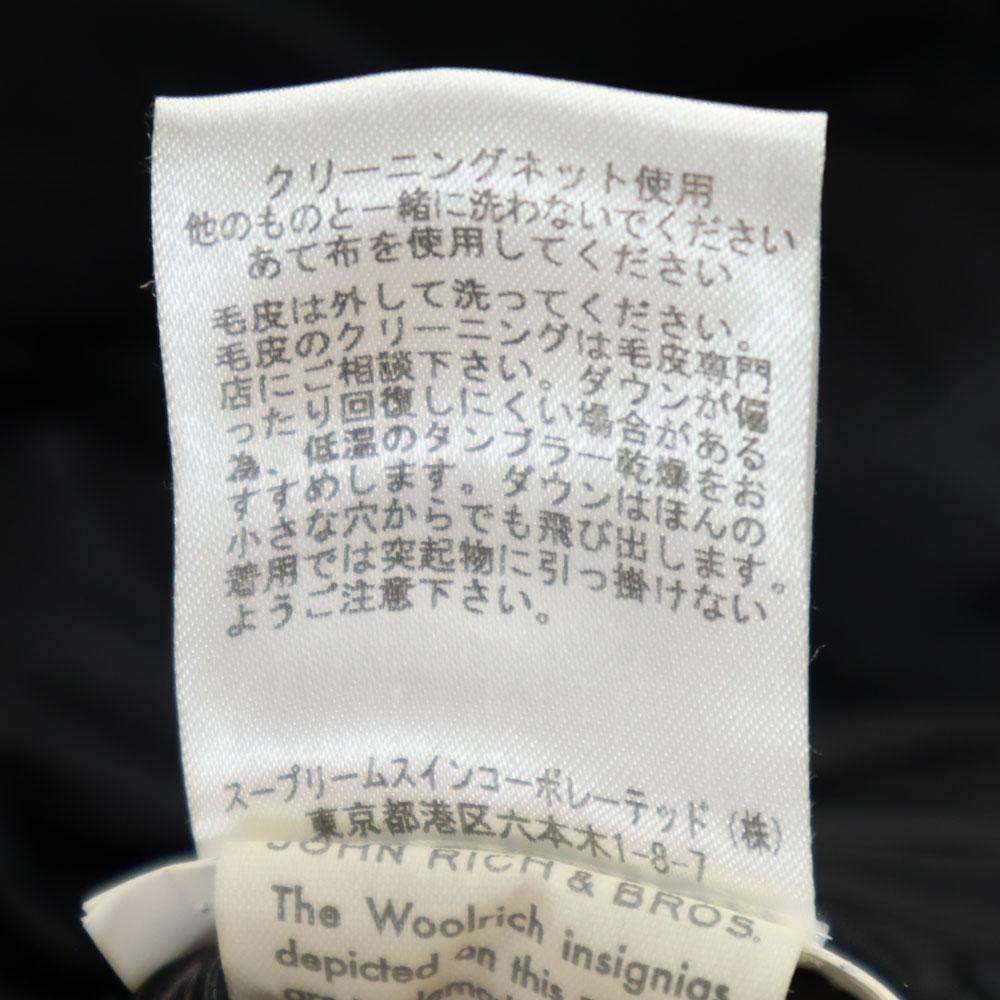 クリーニングネット使用
他のものと一緒に洗わないでください
あて布を使用してください
毛皮は外して洗ってください。
毛皮のクリーニングは毛皮専門
店にご相談下さい。ダウンが偏
ったり回復しにくい場合がある
為、低温のタンブラー乾燥をお
すすめします。ダウンはほんの
小さな穴からでも飛び出します。
着用では突起物に引っ掛けない
ようご注意下さい。
スープリームスインコーポレーテッド(株)
東京都港区六本木1-8-7
JOHN RICH & BROS.
The Woolrich insignias
depicted on this